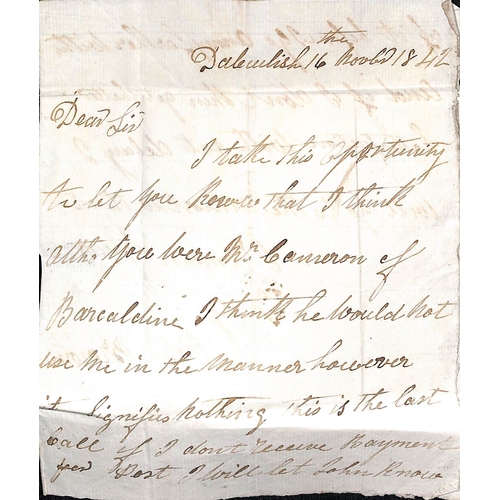 the
Dalewlish 16 Novbr 1842
Dear Sir
I take this Oportunity
to let you Know that I think
altho you were Mr Cameron of
Barcaldine I think he would Not
use Me in the Manner however
it Signifies Nothing this is the last
Call if I dont receive Payment
per Post I will let John Know